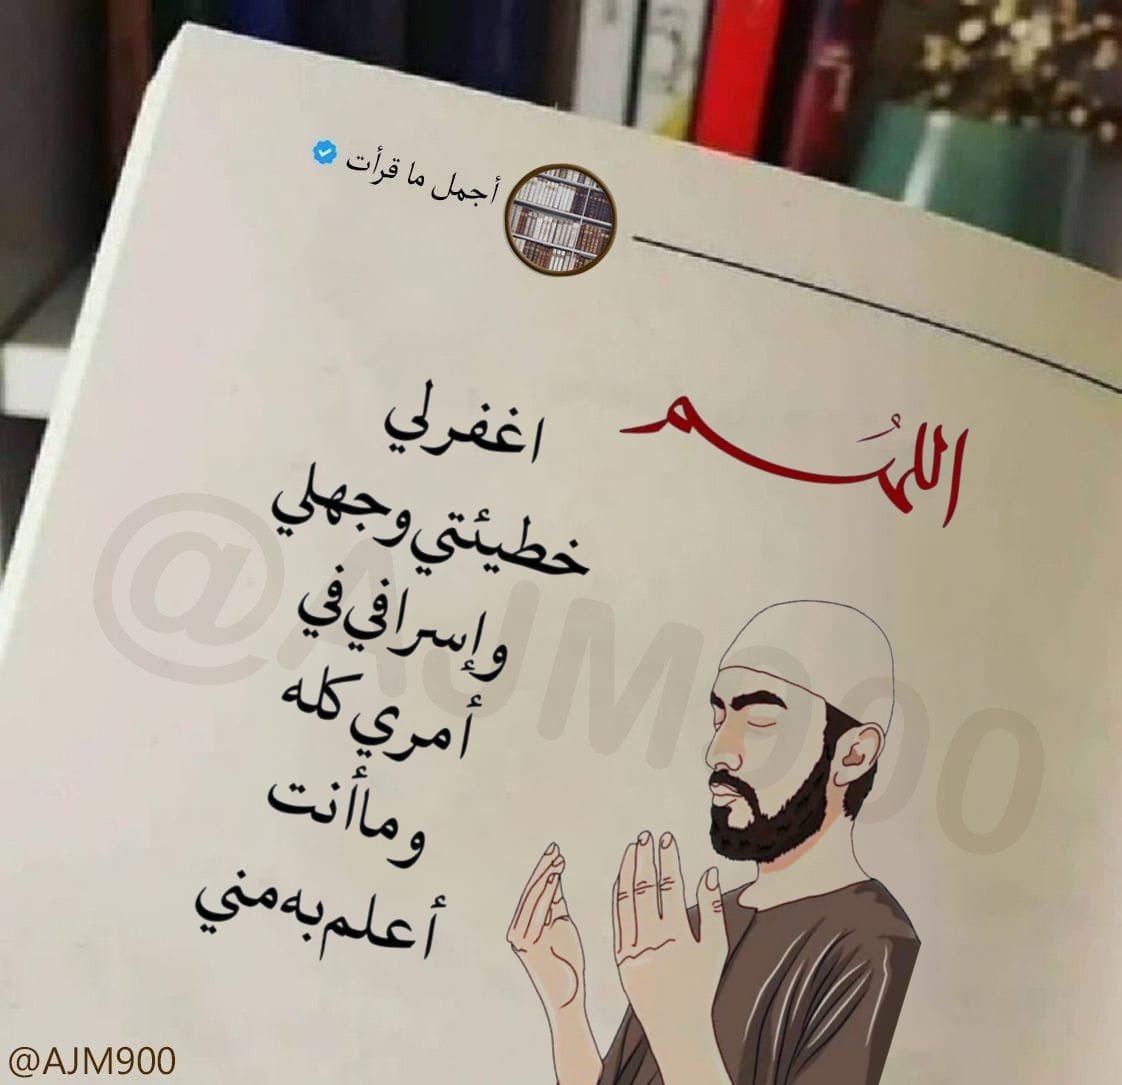 أجمل ما قرأت
اللهُم
اغفرلي
خطيئتي وجهلي
وإسرافي في
أمري كله
وما أنت
أعلم به مني
@AJM900
@AJM900